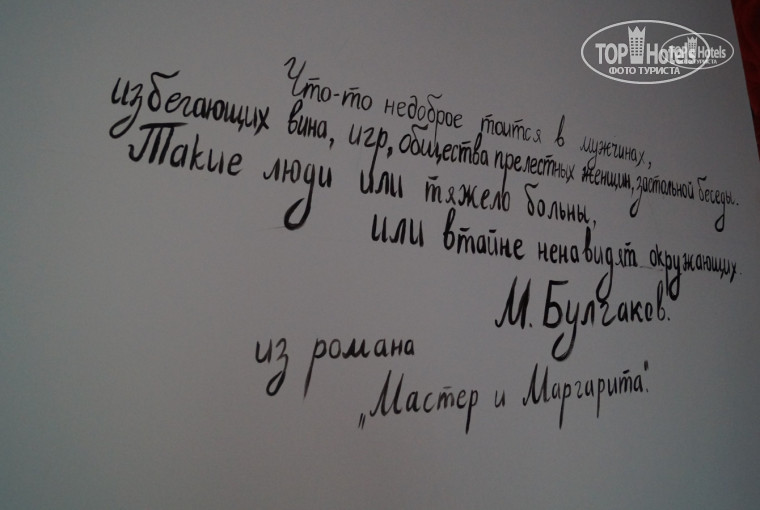 Что-то недоброе таится в мужчинах,
избегающих вина, игр, общества прелестных женщин, застольной беседы.
Такие люди или тяжело больны,
или втайне ненавидят окружающих.
М. Булгаков.
из романа
„Мастер и Маргарита".
TOP Hotels
ФОТО ТУРИСТА
TOP Hotels
ТУРИСТА